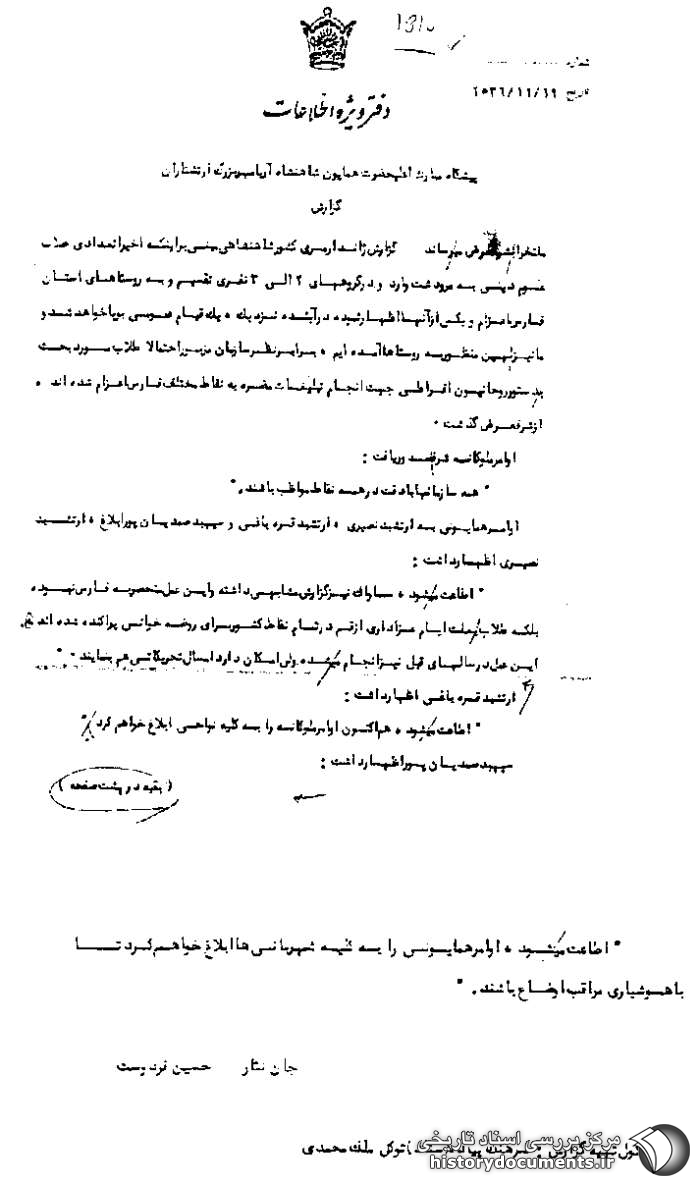 1310
شماره
تاریخ ۲۵۳۶/۱۱/۱۹
دفتر ویژه اطلاعات
پیشگاه مبارک اعلیحضرت همایون شاهنشاه آریامهر بزرگ ارتشتاران
گزارش
مفتخرا بشرفعرض میرساند گزارش ژاندارمری کشور شاهنشاهی مبنی بر اینکه اخیرا تعدادی طلاب
علوم دینی به مرودشت وارد و در گروههای ۲ الی ۳ نفری تقسیم و به روستاهای استان
فارس اعزام و یکی از آنها اظهار شیده در آینده نزدیک ، یک قیام عمومی بپا خواهد شد و
ما نیز بهمین منظور به روستاها آمده ایم ، برابر نظر سازمان مزبور احتمالا طلاب مورد بحث
بدستور روحانیون افراطی جهت انجام تبلیغات مضره به نقاط مختلف فارس اعزام شده اند ،
از شرفعرض گذشت .
اوامر ملوکانه شرفصدور یافت :
" همه سازمانها با دقت در همه نقاط مواظب باشند . "
اوامر همایونی به ارتشبد نصیری ، ارتشبد قره باغی و سپهبد صمدیان پور ابلاغ ، ارتشبد
نصیری اظهار داشت :
" اطاعت میشود ، ساواک نیز گزارش مشابهی داشته و این عمل منحصر به فارس نبوده
بلکه طلاب بعلت ایام عزاداری از قم در تمام نقاط کشور برای روضه خوانی پراکنده شده اند
این عمل در سالهای قبل نیز انجام میشده ولی امکان دارد امسال تحریکاتی هم بنمایند . "
ارتشبد قره باغی اظهار داشت :
" اطاعت میشود ، هم اکنون اوامر ملوکانه را به کلیه نواحی ابلاغ خواهم کرد "
سپهبد صمدیان پور اظهار داشت :
( بقیه در پشت صفحه )
" اطاعت میشود ، اوامر همایونی را به کلیه شهربانی ها ابلاغ خواهم کرد تا
با هوشیاری مراقب اوضاع باشند . "
جان نثار حسین فردوست
گزارش : سرهنگ توکل ملک محمدی
مرکز بررسی اسناد تاریخی
historydocuments.ir